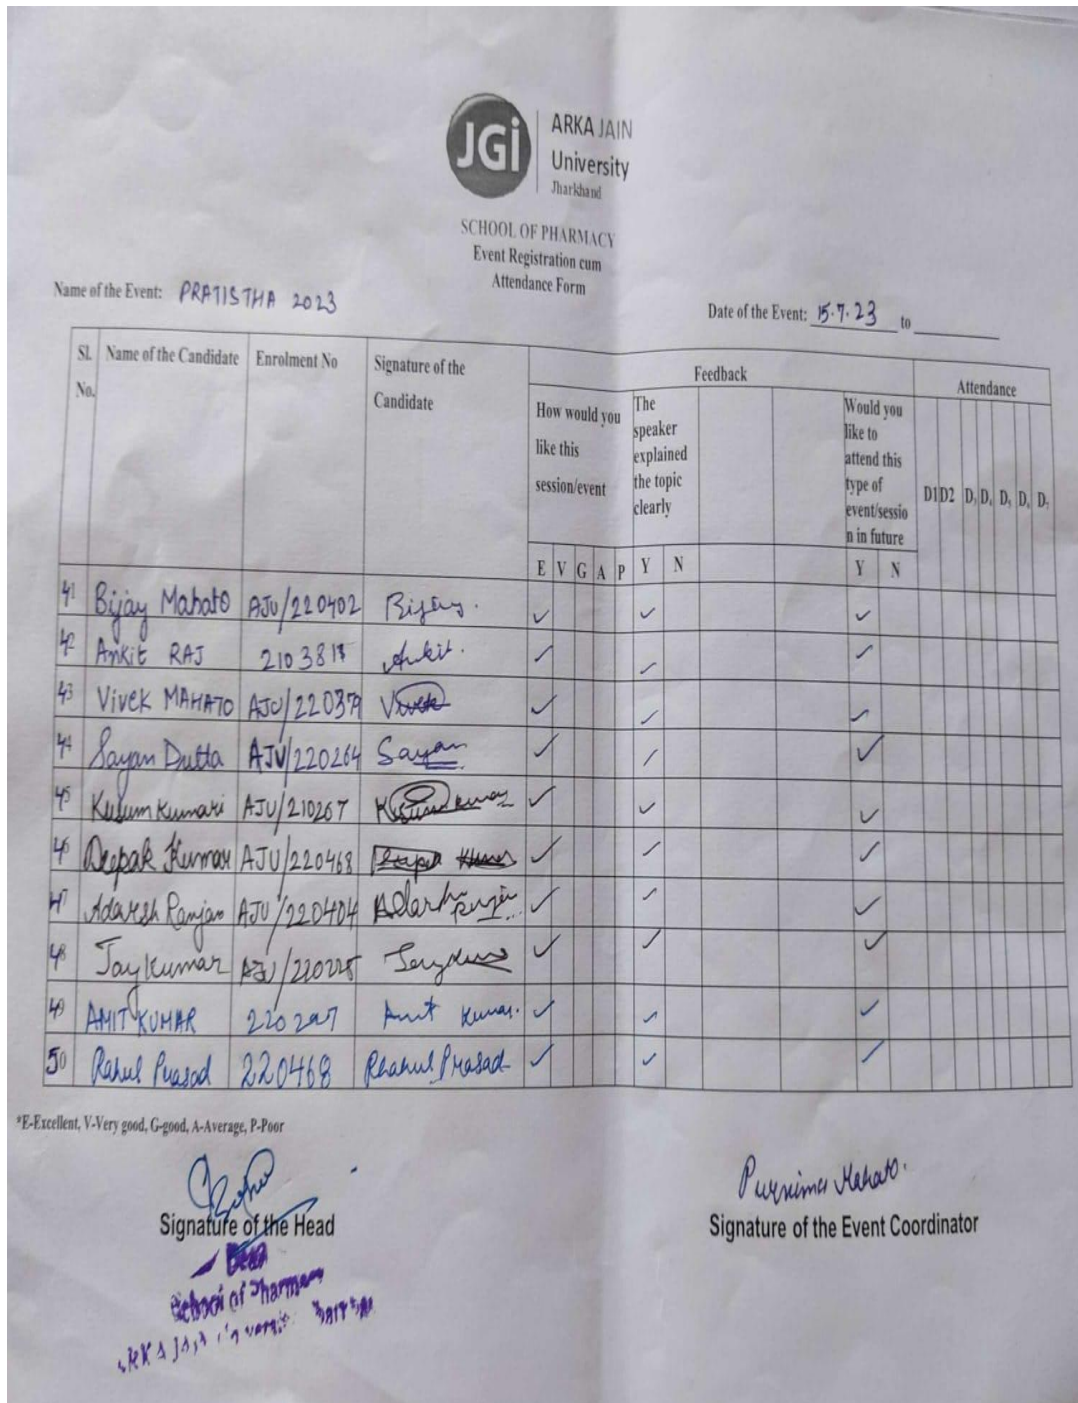 JGi
ARKA JAIN
University
Jharkhand
SCHOOL OF PHARMACY
Event Registration cum
Attendance Form
Name of the Event: PRATISTHA 2023
Date of the Event: 15.7.23 to
Sl. No. Name of the Candidate Enrolment No Signature of the Candidate Feedback Attendance
How would you like this session/event The speaker explained the topic clearly Would you like to attend this type of event/sessio n in future D1 D2 D3 D4 D5 D6 D7
E V G A P Y N Y N
41 Bijay Mahato AJU/220402 Bijay. ✓ ✓ ✓
42 Ankit RAJ 210381 Ankit. ✓ ✓ ✓
43 Vivek MAHATO AJU/220379 Vivek ✓ ✓ ✓
44 Sayan Dutta AJU/220264 Sayan ✓ ✓ ✓
45 Kusum Kumari AJU/210267 Kusum Kumari ✓ ✓ ✓
46 Deepak Kumar AJU/220468 Deepak Kumar ✓ ✓ ✓
47 Adarsh Ranjan AJU/220404 Adarsh Ranjan ✓ ✓ ✓
48 Jay Kumar AJU/220225 Jay Kumar ✓ ✓ ✓
49 AMIT KUMAR 220297 Amit Kumar. ✓ ✓ ✓
50 Rahul Prasad 220468 Rhahul Prasad ✓ ✓ ✓
*E-Excellent, V-Very good, G-good, A-Average, P-Poor
Purnima Mahato.
Signature of the Head
Signature of the Event Coordinator
Dean
School of Pharmacy